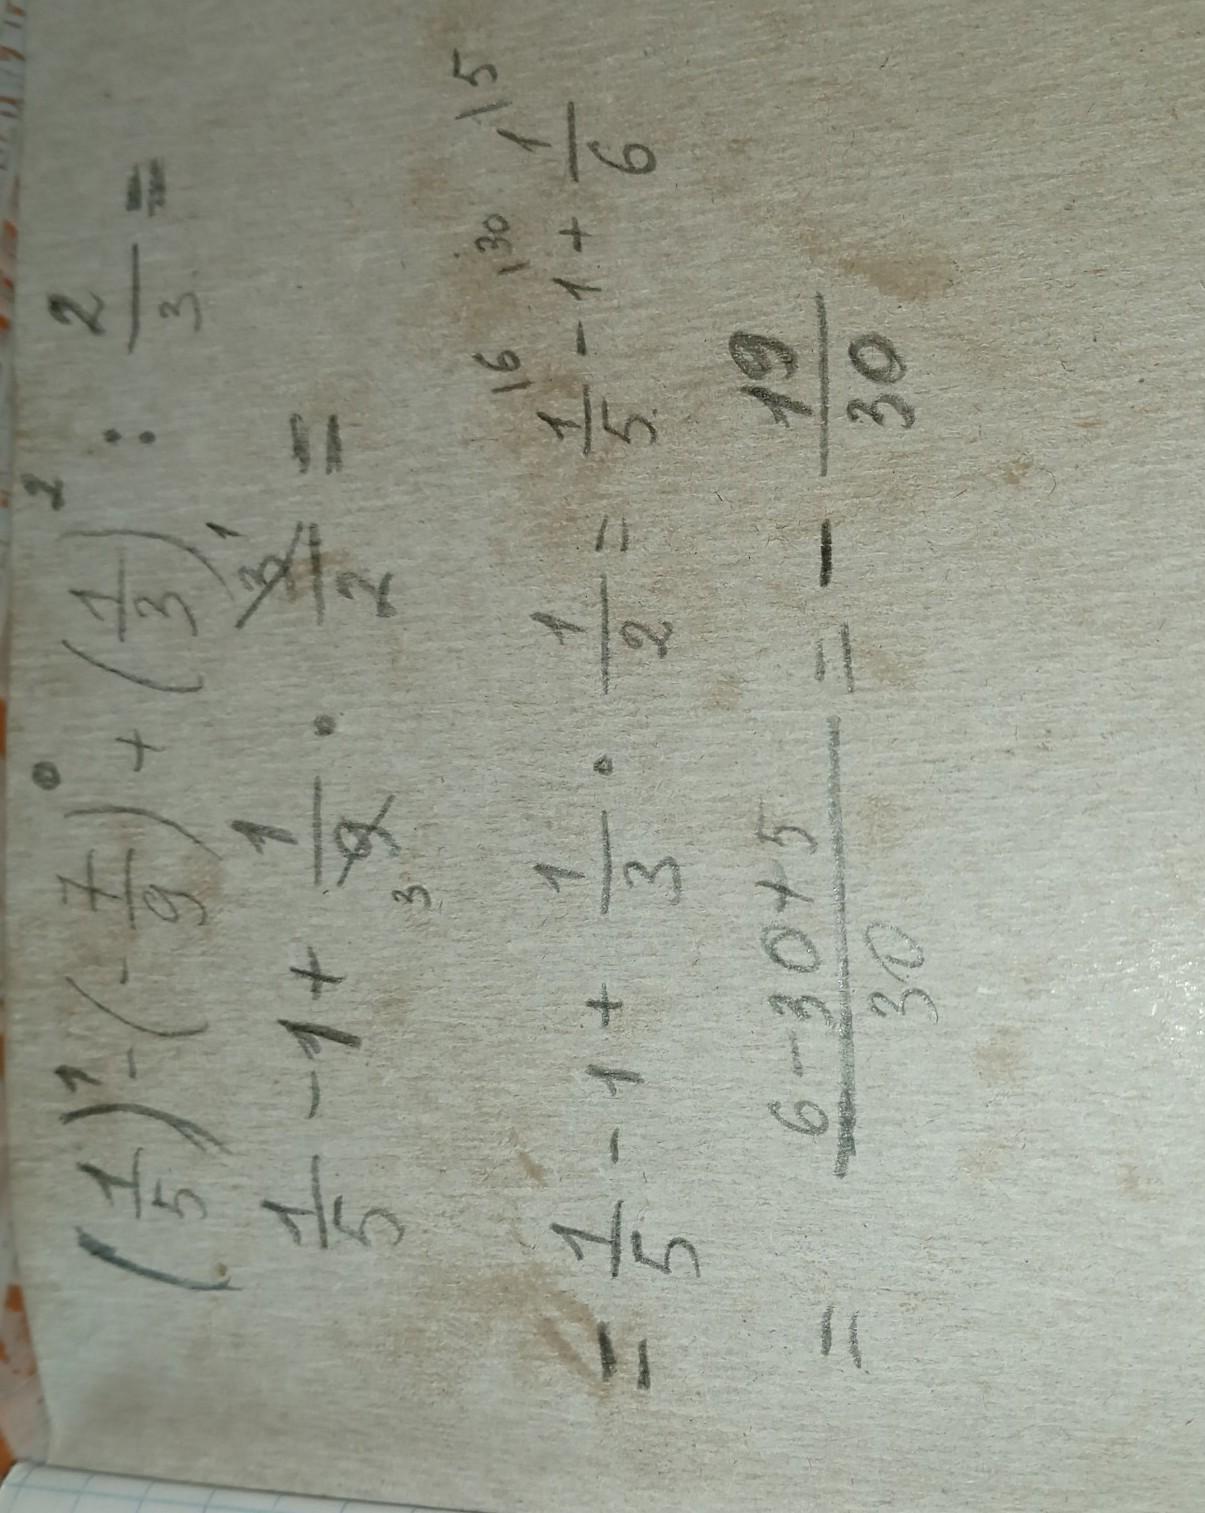 (1/5)^1 - (-7/9)^0 + (1/3)^2 : 2/3 =
1/5 - 1 + 1/9 · 3/2 = 3 1
= 1/5 - 1 + 1/3 · 1/2 = 1/5 \6 - 1 \30 + 1/6 \5
= (6 - 30 + 5)/30 = - 19/30